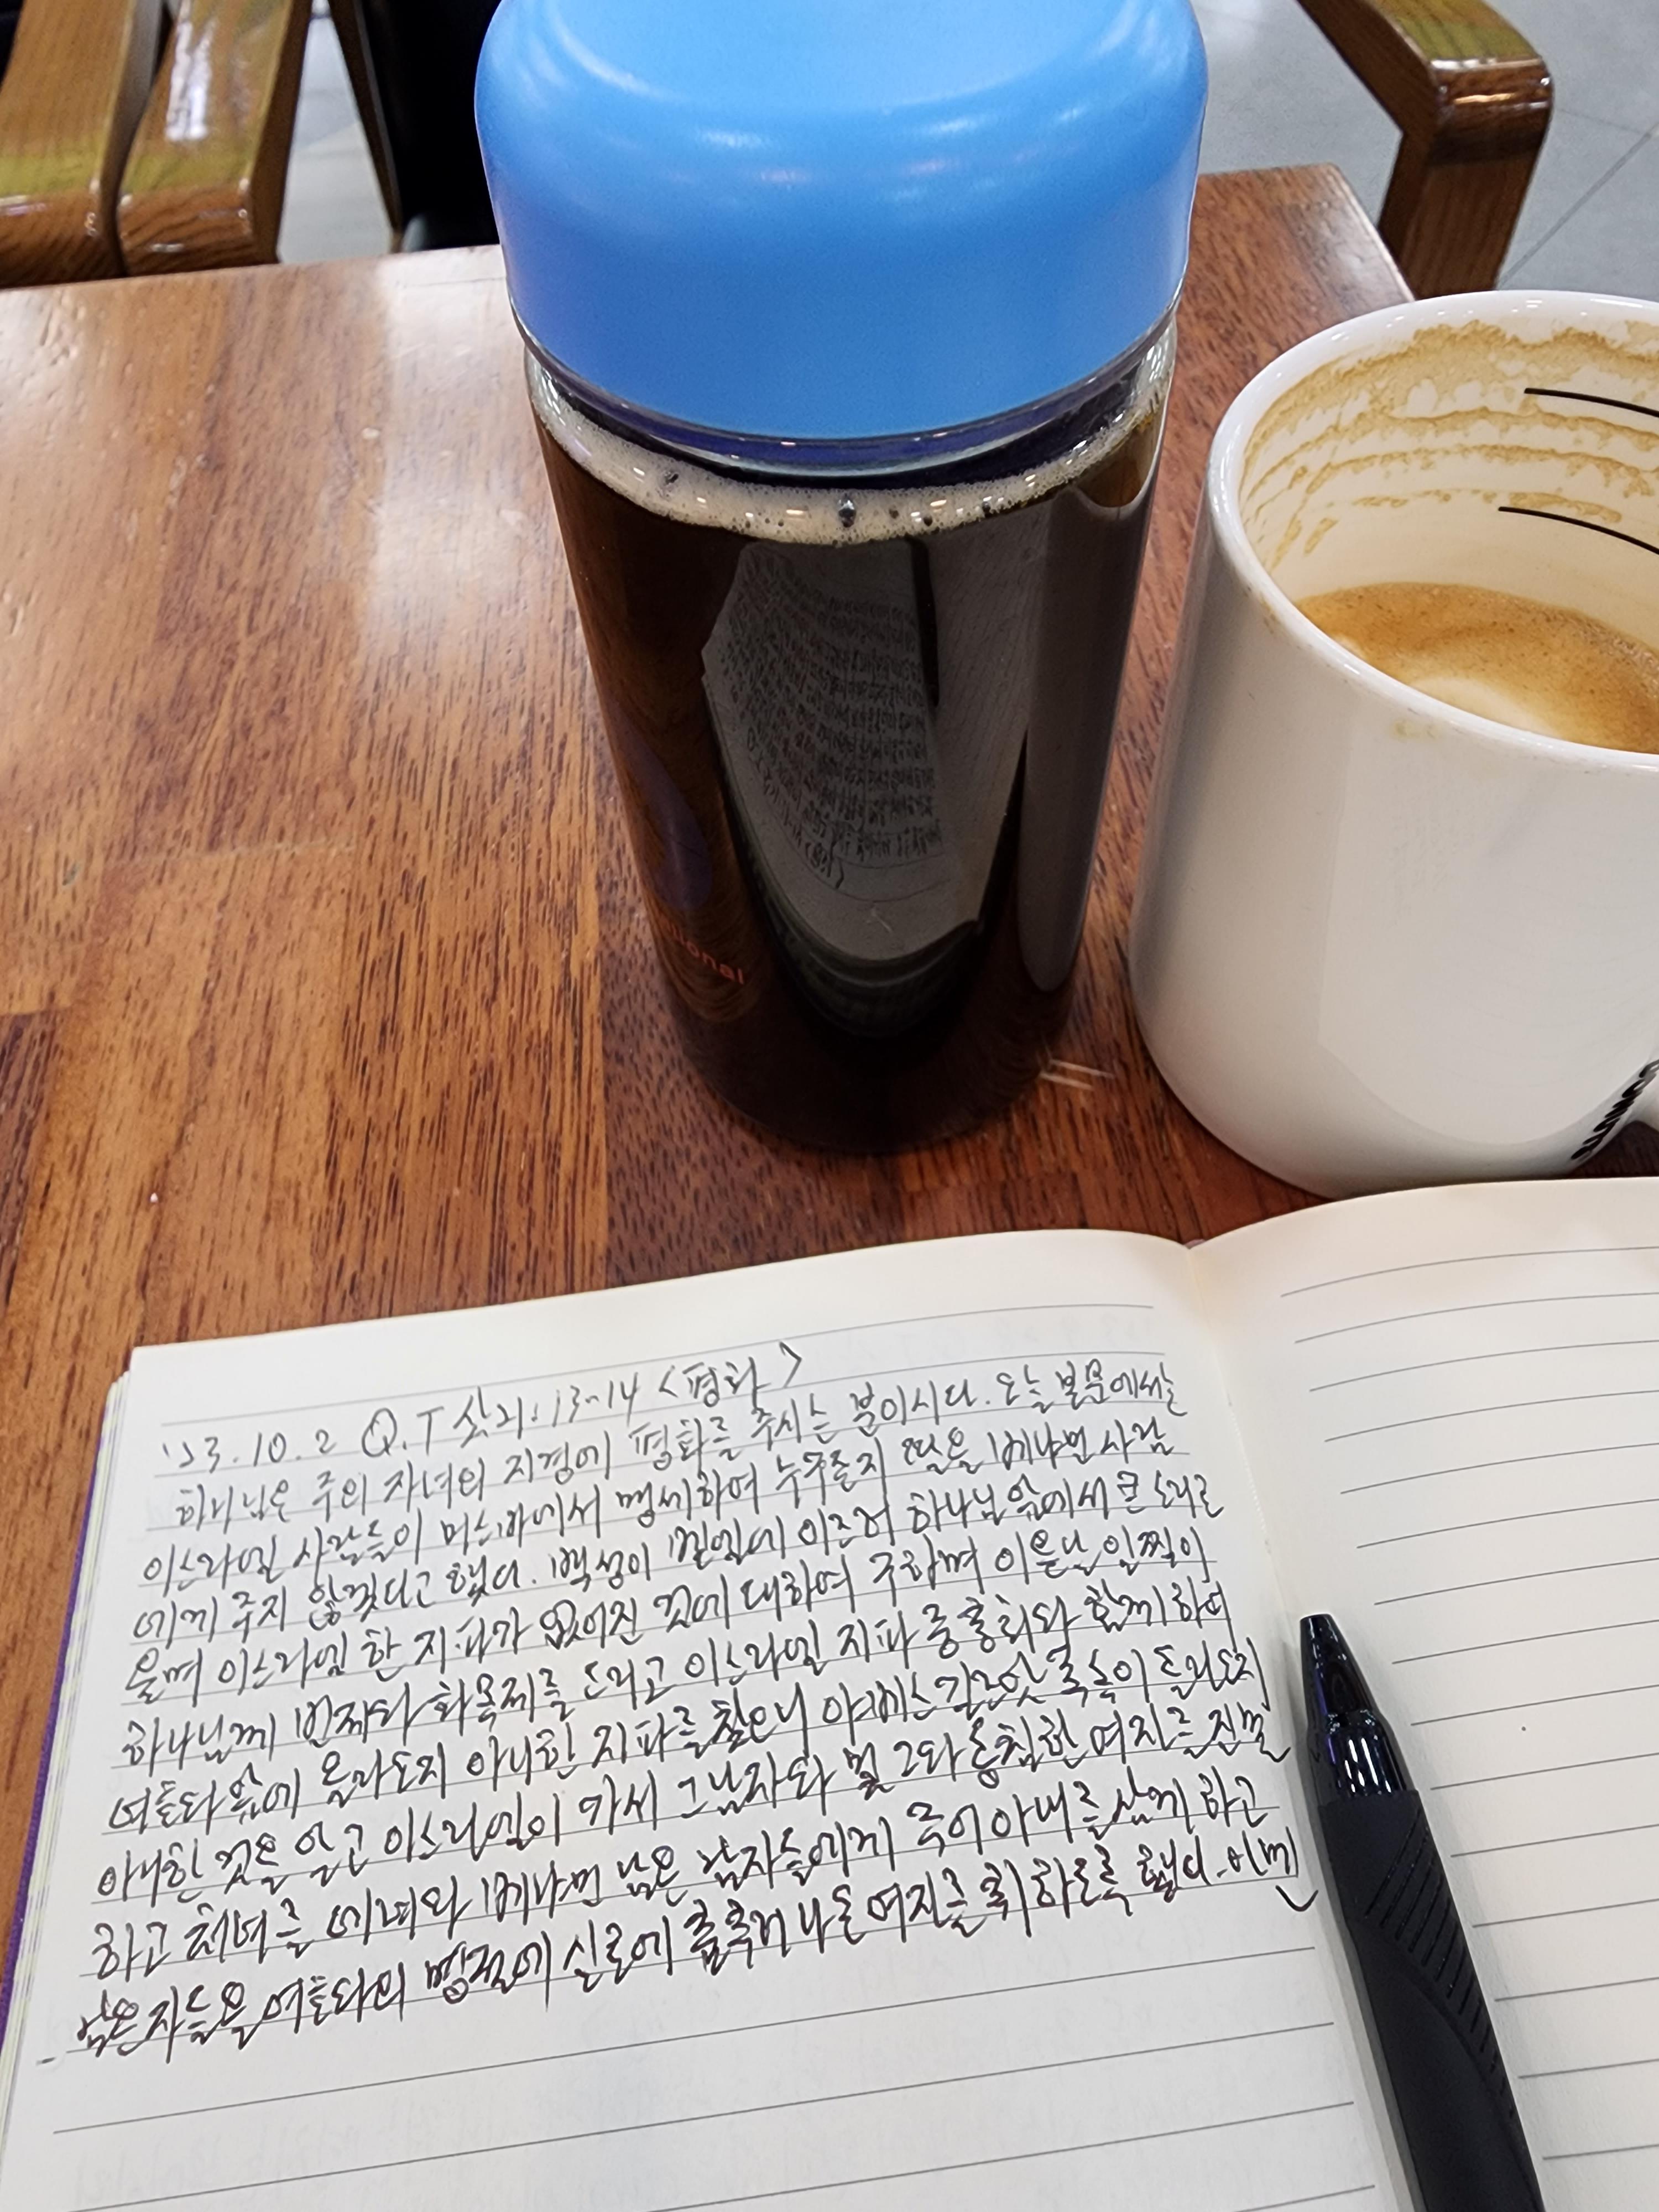 tional
'23.10.2 Q.T 삿21:13-14 <평화>
하나님은 주의 자녀의 지경에 평화를 주시는 분이시다. 오늘 본문에서는
이스라엘 사람들이 미스바에서 맹세하여 누구든지 딸을 베냐민 사람
에게 주지 않겠다고 했다. 백성이 벧엘에 이르러 하나님 앞에서 큰 소리로
울며 이스라엘 한 지파가 없어진 것에 대하여 구하며 이튿날 일찍이
하나님께 번제와 화목제를 드리고 이스라엘 지파 중 총회와 함께 하여
여호와 앞에 올라오지 아니한 지파를 찾으니 야베스 길르앗 족속이 올라오지
아니한 것을 알고 이스라엘이 가서 그 남자와 및 그와 동침한 여자를 진멸
하고 처녀를 데려와 베냐민 남은 남자들에게 주어 아내를 삼게 하고
남은 자들은 여호와의 명절에 실로에 춤추러 나온 여자를 취하도록 했다.